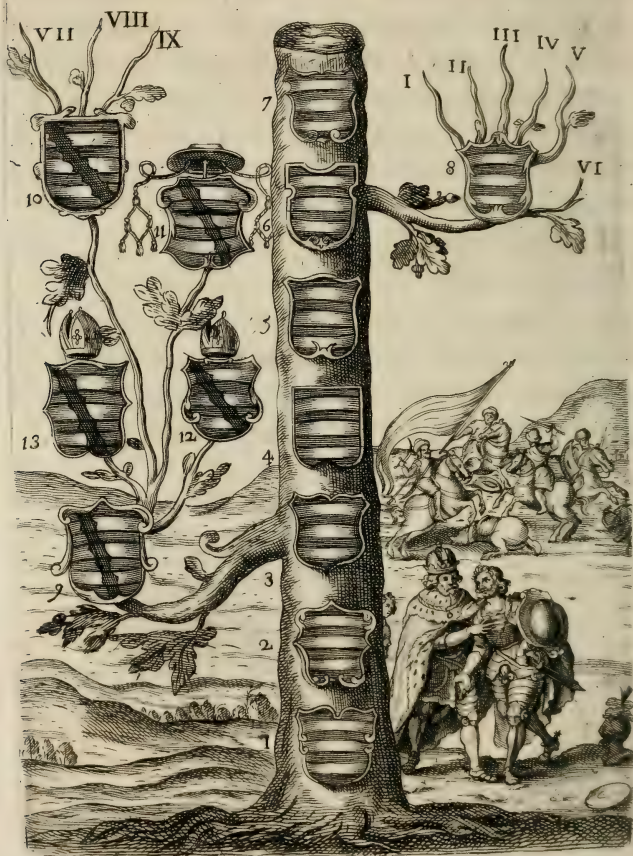 VII VIII IX
I II III IV V
7
8
VI
10
11
6
5
13
12
4
9
3
2
1